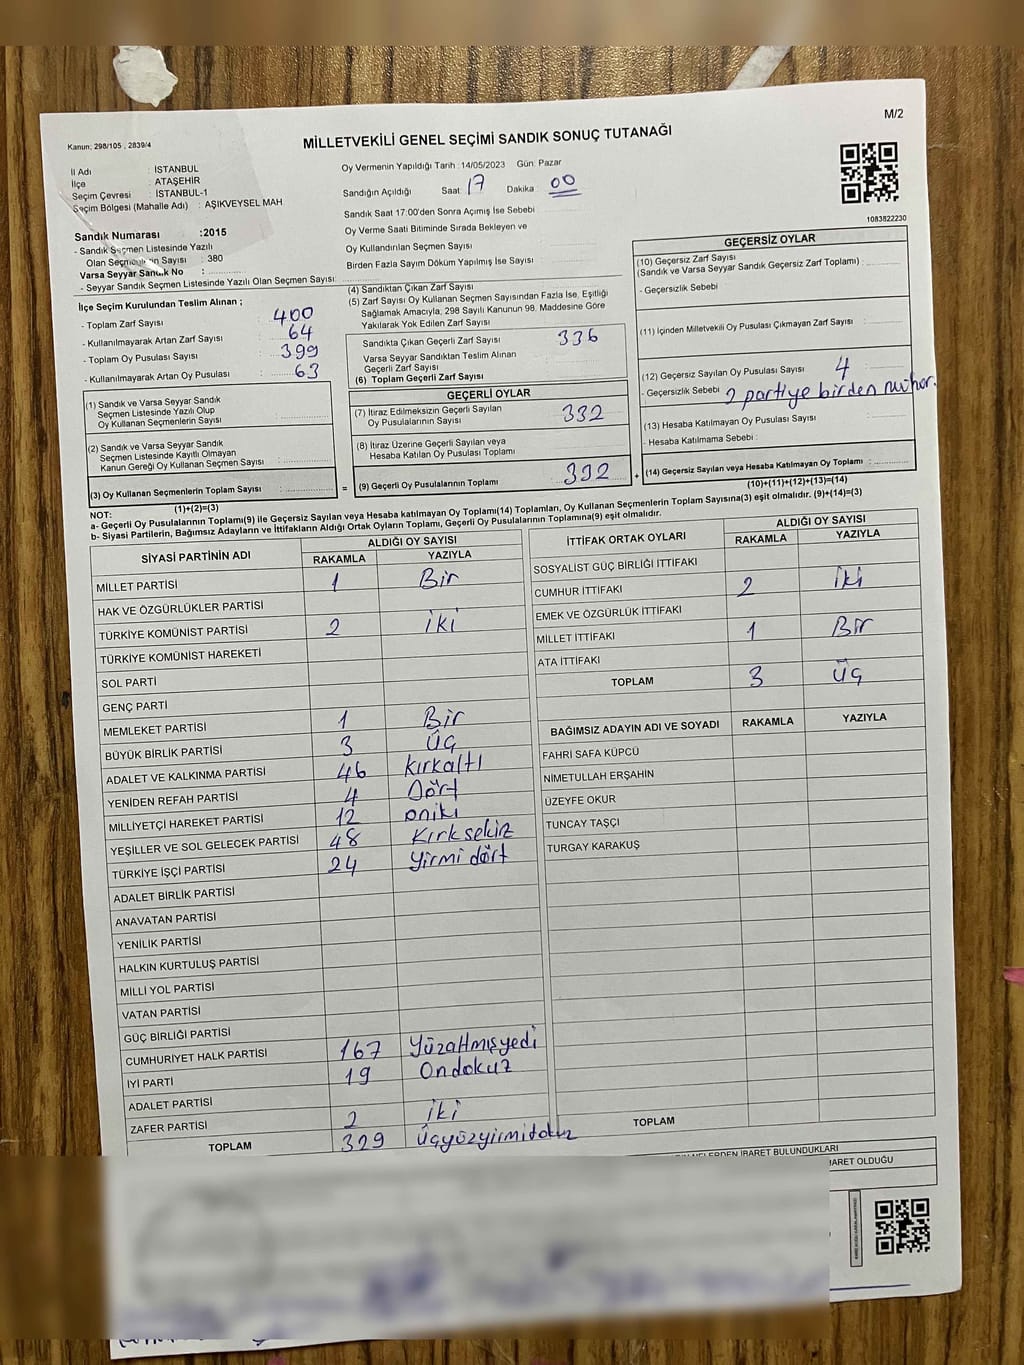 M/2
Kanun: 298/105 , 2839/4
MİLLETVEKİLİ GENEL SEÇİMİ SANDIK SONUÇ TUTANAĞI
İl Adı : İSTANBUL
İlçe : ATAŞEHİR
Seçim Çevresi : İSTANBUL-1
Seçim Bölgesi (Mahalle Adı) : AŞIKVEYSEL MAH
Sandık Numarası :2015
- Sandık Seçmen Listesinde Yazılı
Olan Seçmenlerin Sayısı : 380
Varsa Seyyar Sandık No :
- Seyyar Sandık Seçmen Listesinde Yazılı Olan Seçmen Sayısı:
Oy Vermenin Yapıldığı Tarih :14/05/2023 Gün: Pazar
Sandığın Açıldığı Saat: 17 Dakika 00
Sandık Saat 17:00'den Sonra Açımış İse Sebebi
Oy Verme Saati Bitiminde Sırada Bekleyen ve
Oy Kullandırılan Seçmen Sayısı
Birden Fazla Sayım Döküm Yapılmış İse Sayısı
1083822230
İlçe Seçim Kurulundan Teslim Alınan ;
- Toplam Zarf Sayısı : 400
- Kullanılmayarak Artan Zarf Sayısı : 64
- Toplam Oy Pusulası Sayısı : 399
- Kullanılmayarak Artan Oy Pusulası : 63
(1) Sandık ve Varsa Seyyar Sandık
Seçmen Listesinde Yazılı Olup
Oy Kullanan Seçmenlerin Sayısı :
(2) Sandık ve Varsa Seyyar Sandık
Seçmen Listesinde Kayıtlı Olmayan
Kanun Gereği Oy Kullanan Seçmen Sayısı :
(3) Oy Kullanan Seçmenlerin Toplam Sayısı :
(1)+(2)=(3)
(4) Sandıktan Çıkan Zarf Sayısı
(5) Zarf Sayısı Oy Kullanan Seçmen Sayısından Fazla İse, Eşitliği
Sağlamak Amacıyla, 298 Sayılı Kanunun 98. Maddesine Göre
Yakılarak Yok Edilen Zarf Sayısı
Sandıkta Çıkan Geçerli Zarf Sayısı 336
Varsa Seyyar Sandıktan Teslim Alınan
Geçerli Zarf Sayısı
(6) Toplam Geçerli Zarf Sayısı
GEÇERLİ OYLAR
(7) İtiraz Edilmeksizin Geçerli Sayılan
Oy Pusulalarının Sayısı 332
(8) İtiraz Üzerine Geçerli Sayılan veya
Hesaba Katılan Oy Pusulası Toplamı
= (9) Geçerli Oy Pusulalarının Toplamı 332 +
GEÇERSİZ OYLAR
(10) Geçersiz Zarf Sayısı
(Sandık ve Varsa Seyyar Sandık Geçersiz Zarf Toplamı) :
- Geçersizlik Sebebi
(11) İçinden Milletvekili Oy Pusulası Çıkmayan Zarf Sayısı
(12) Geçersiz Sayılan Oy Pusulası Sayısı 4
- Geçersizlik Sebebi 2 partiye birden mühür.
(13) Hesaba Katılmayan Oy Pusulası Sayısı :
- Hesaba Katılmama Sebebi :
(14) Geçersiz Sayılan veya Hesaba Katılmayan Oy Toplamı :
(10)+(11)+(12)+(13)=(14)
NOT:
a- Geçerli Oy Pusulalarının Toplamı(9) ile Geçersiz Sayılan veya Hesaba katılmayan Oy Toplamı(14) Toplamları, Oy Kullanan Seçmenlerin Toplam Sayısına(3) eşit olmalıdır. (9)+(14)=(3)
b- Siyasi Partilerin, Bağımsız Adayların ve İttifakların Aldığı Ortak Oyların Toplamı, Geçerli Oy Pusulalarının Toplamına(9) eşit olmalıdır.
SİYASİ PARTİNİN ADI ALDIĞI OY SAYISI
RAKAMLA YAZIYLA
MİLLET PARTİSİ 1 Bir
HAK VE ÖZGÜRLÜKLER PARTİSİ
TÜRKİYE KOMÜNİST PARTİSİ 2 iki
TÜRKİYE KOMÜNİST HAREKETİ
SOL PARTİ
GENÇ PARTİ
MEMLEKET PARTİSİ 1 Bir
BÜYÜK BİRLİK PARTİSİ 3 Üç
ADALET VE KALKINMA PARTİSİ 46 Kırkaltı
YENİDEN REFAH PARTİSİ 4 Dört
MİLLİYETÇİ HAREKET PARTİSİ 12 oniki
YEŞİLLER VE SOL GELECEK PARTİSİ 48 Kırk sekiz
TÜRKİYE İŞÇİ PARTİSİ 24 Yirmi dört
ADALET BİRLİK PARTİSİ
ANAVATAN PARTİSİ
YENİLİK PARTİSİ
HALKIN KURTULUŞ PARTİSİ
MİLLİ YOL PARTİSİ
VATAN PARTİSİ
GÜÇ BİRLİĞİ PARTİSİ
CUMHURİYET HALK PARTİSİ 167 Yüzaltmışyedi
İYİ PARTİ 19 Ondokuz
ADALET PARTİSİ
ZAFER PARTİSİ 2 iki
TOPLAM 329 Üçyüzyirmidokuz
İTTİFAK ORTAK OYLARI ALDIĞI OY SAYISI
RAKAMLA YAZIYLA
SOSYALİST GÜÇ BİRLİĞİ İTTİFAKI
CUMHUR İTTİFAKI 2 iki
EMEK VE ÖZGÜRLÜK İTTİFAKI
MİLLET İTTİFAKI 1 Bir
ATA İTTİFAKI
TOPLAM 3 Üç
BAĞIMSIZ ADAYIN ADI VE SOYADI RAKAMLA YAZIYLA
FAHRİ SAFA KÜPCÜ
NİMETULLAH ERŞAHİN
ÜZEYFE OKUR
TUNCAY TAŞÇI
TURGAY KARAKUŞ
TOPLAM
İBARET BULUNDUKLARI
İBARET OLDUĞU